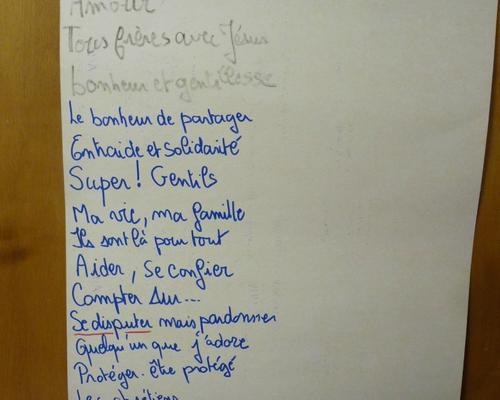 Amour
Tous frères avec Jésus
bonheur et gentillesse
Le bonheur de partager
Entraide et solidarité
Super! Gentils
Ma vie, ma famille
Ils sont là pour tout
Aider, se confier
Compter sur...
Se disputer mais pardonner
Quelqu'un que j'adore
Protéger. être protégé
Les chrétiens